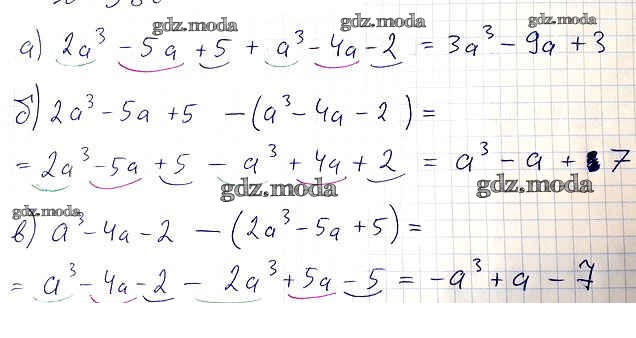 gdz.moda gdz.moda gdz.moda
а) 2a³ - 5a + 5 + a³ - 4a - 2 = 3a³ - 9a + 3
б) 2a³ - 5a + 5 - (a³ - 4a - 2) =
= 2a³ - 5a + 5 - a³ + 4a + 2 = a³ - a + 7
gdz.moda gdz.moda
gdz.moda
в) a³ - 4a - 2 - (2a³ - 5a + 5) =
= a³ - 4a - 2 - 2a³ + 5a - 5 = -a³ + a - 7